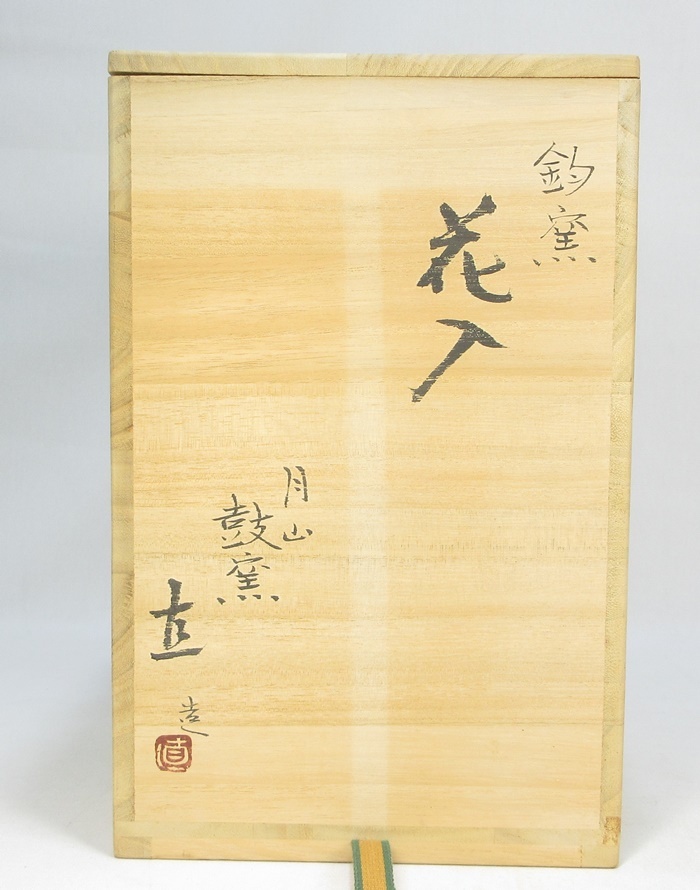 釣窯
花入
月山
鼓窯
直
造
直